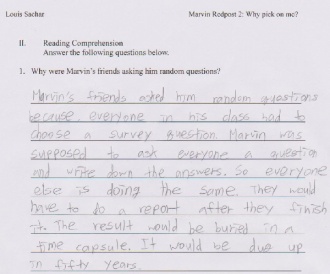 Louis Sachar Marvin Redpost 2: Why pick on me?
II. Reading Comprehension
Answer the following questions below.
1. Why were Marvin's friends asking him random questions?
Marvin's friends asked him random questions
because, everyone in his class had to
choose a survey question. Marvin was
supposed to ask everyone a question
and write down the answers. So everyone
else is doing the same. They would
have to do a report after they finish
it. The result would be buried in a
time capsule. It would be dug up
in fifty years.